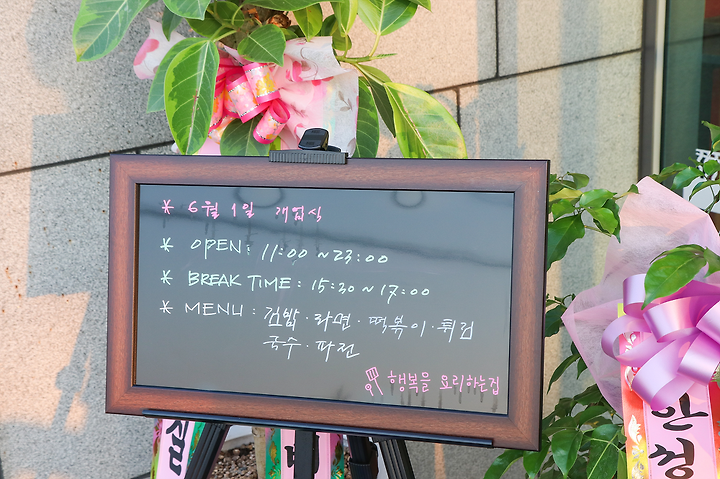 * 6월 1일 개업식
* OPEN : 11:00 ~ 23:00
* BREAK TIME : 15:30 ~ 17:00
* MENU : 김밥 · 라면 · 떡볶이 · 튀김
국수 · 파전
행복을 요리하는집